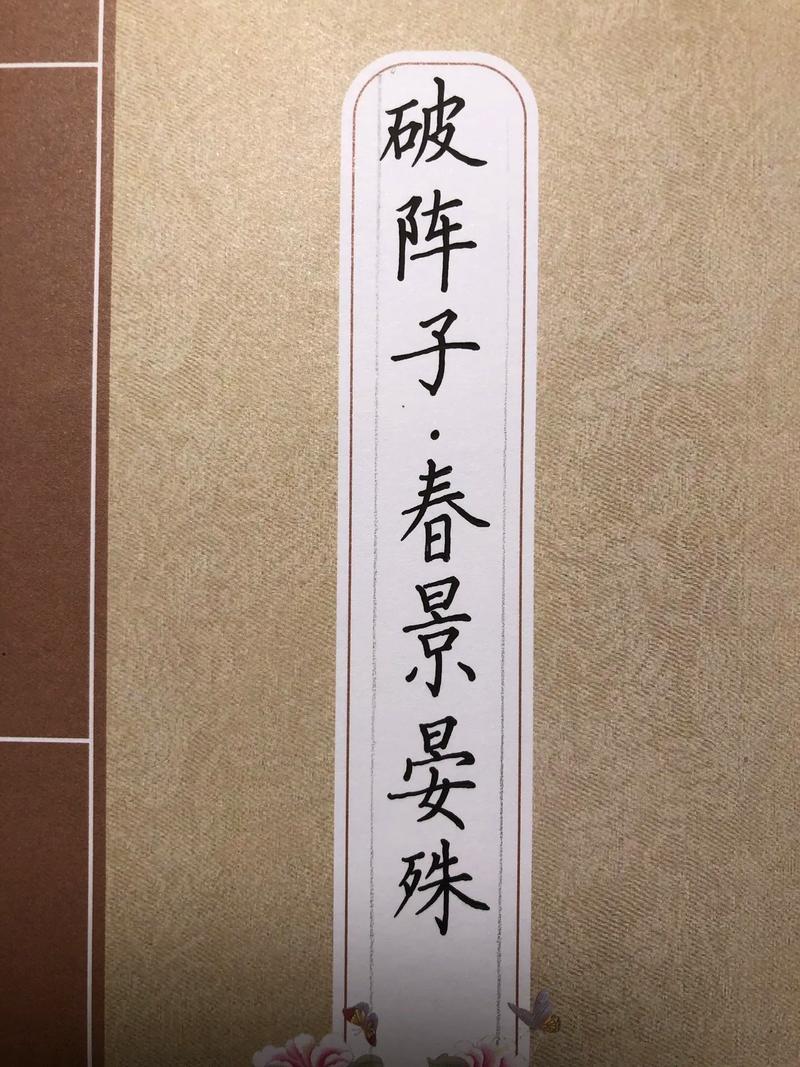 破阵子·春景晏殊